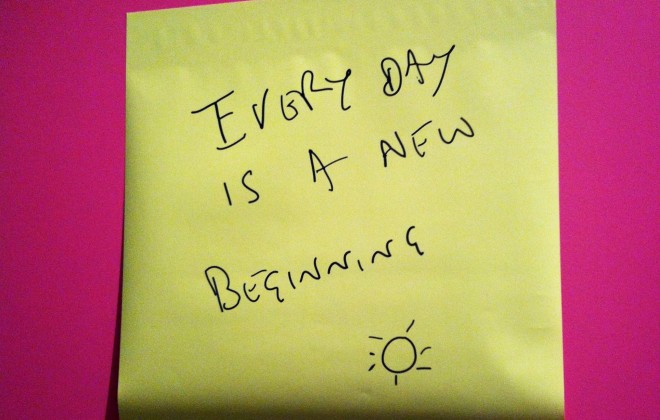 EVERY DAY
IS A NEW
BEGINNING